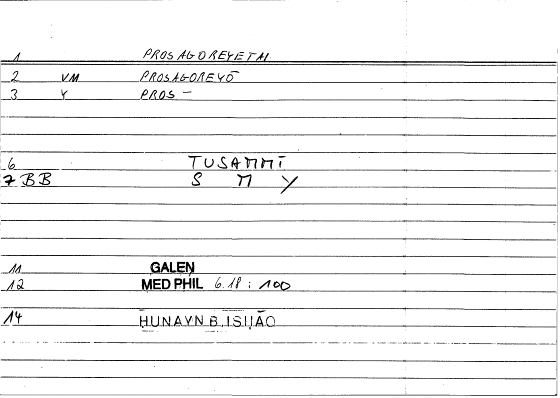 1 PROSAGOREYETAI
2 VM PROSAGOREYŌ
3 Y PROS-
6 TUSAMMI
7 BB S M Y
11 GALEN
12 MED PHIL 6.18 : 100
14 HUNAYN B. ISHĀQ